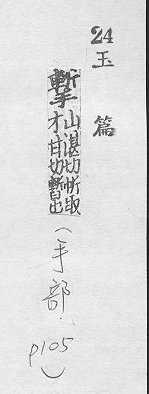 24
玉篇
山湛切斬取
才甘切暫出
(手部.
P105)